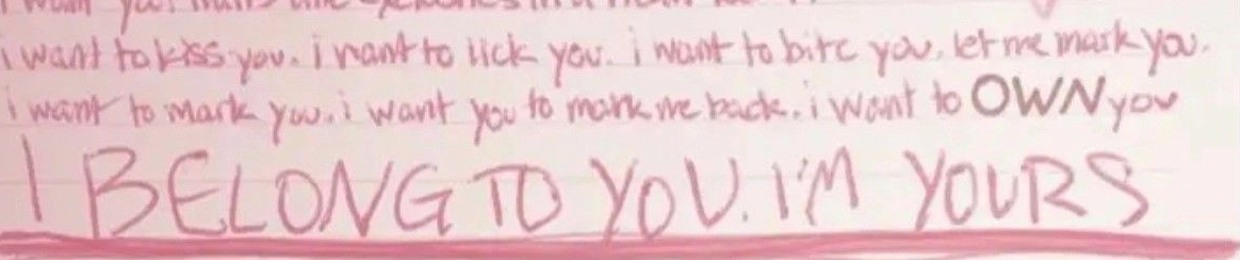 i want to kiss you. i want to lick you. i want to bite you. let me mark you.
i want to mark you. i want you to mark me back. i want to OWN you
I BELONG TO YOU. I'M YOURS